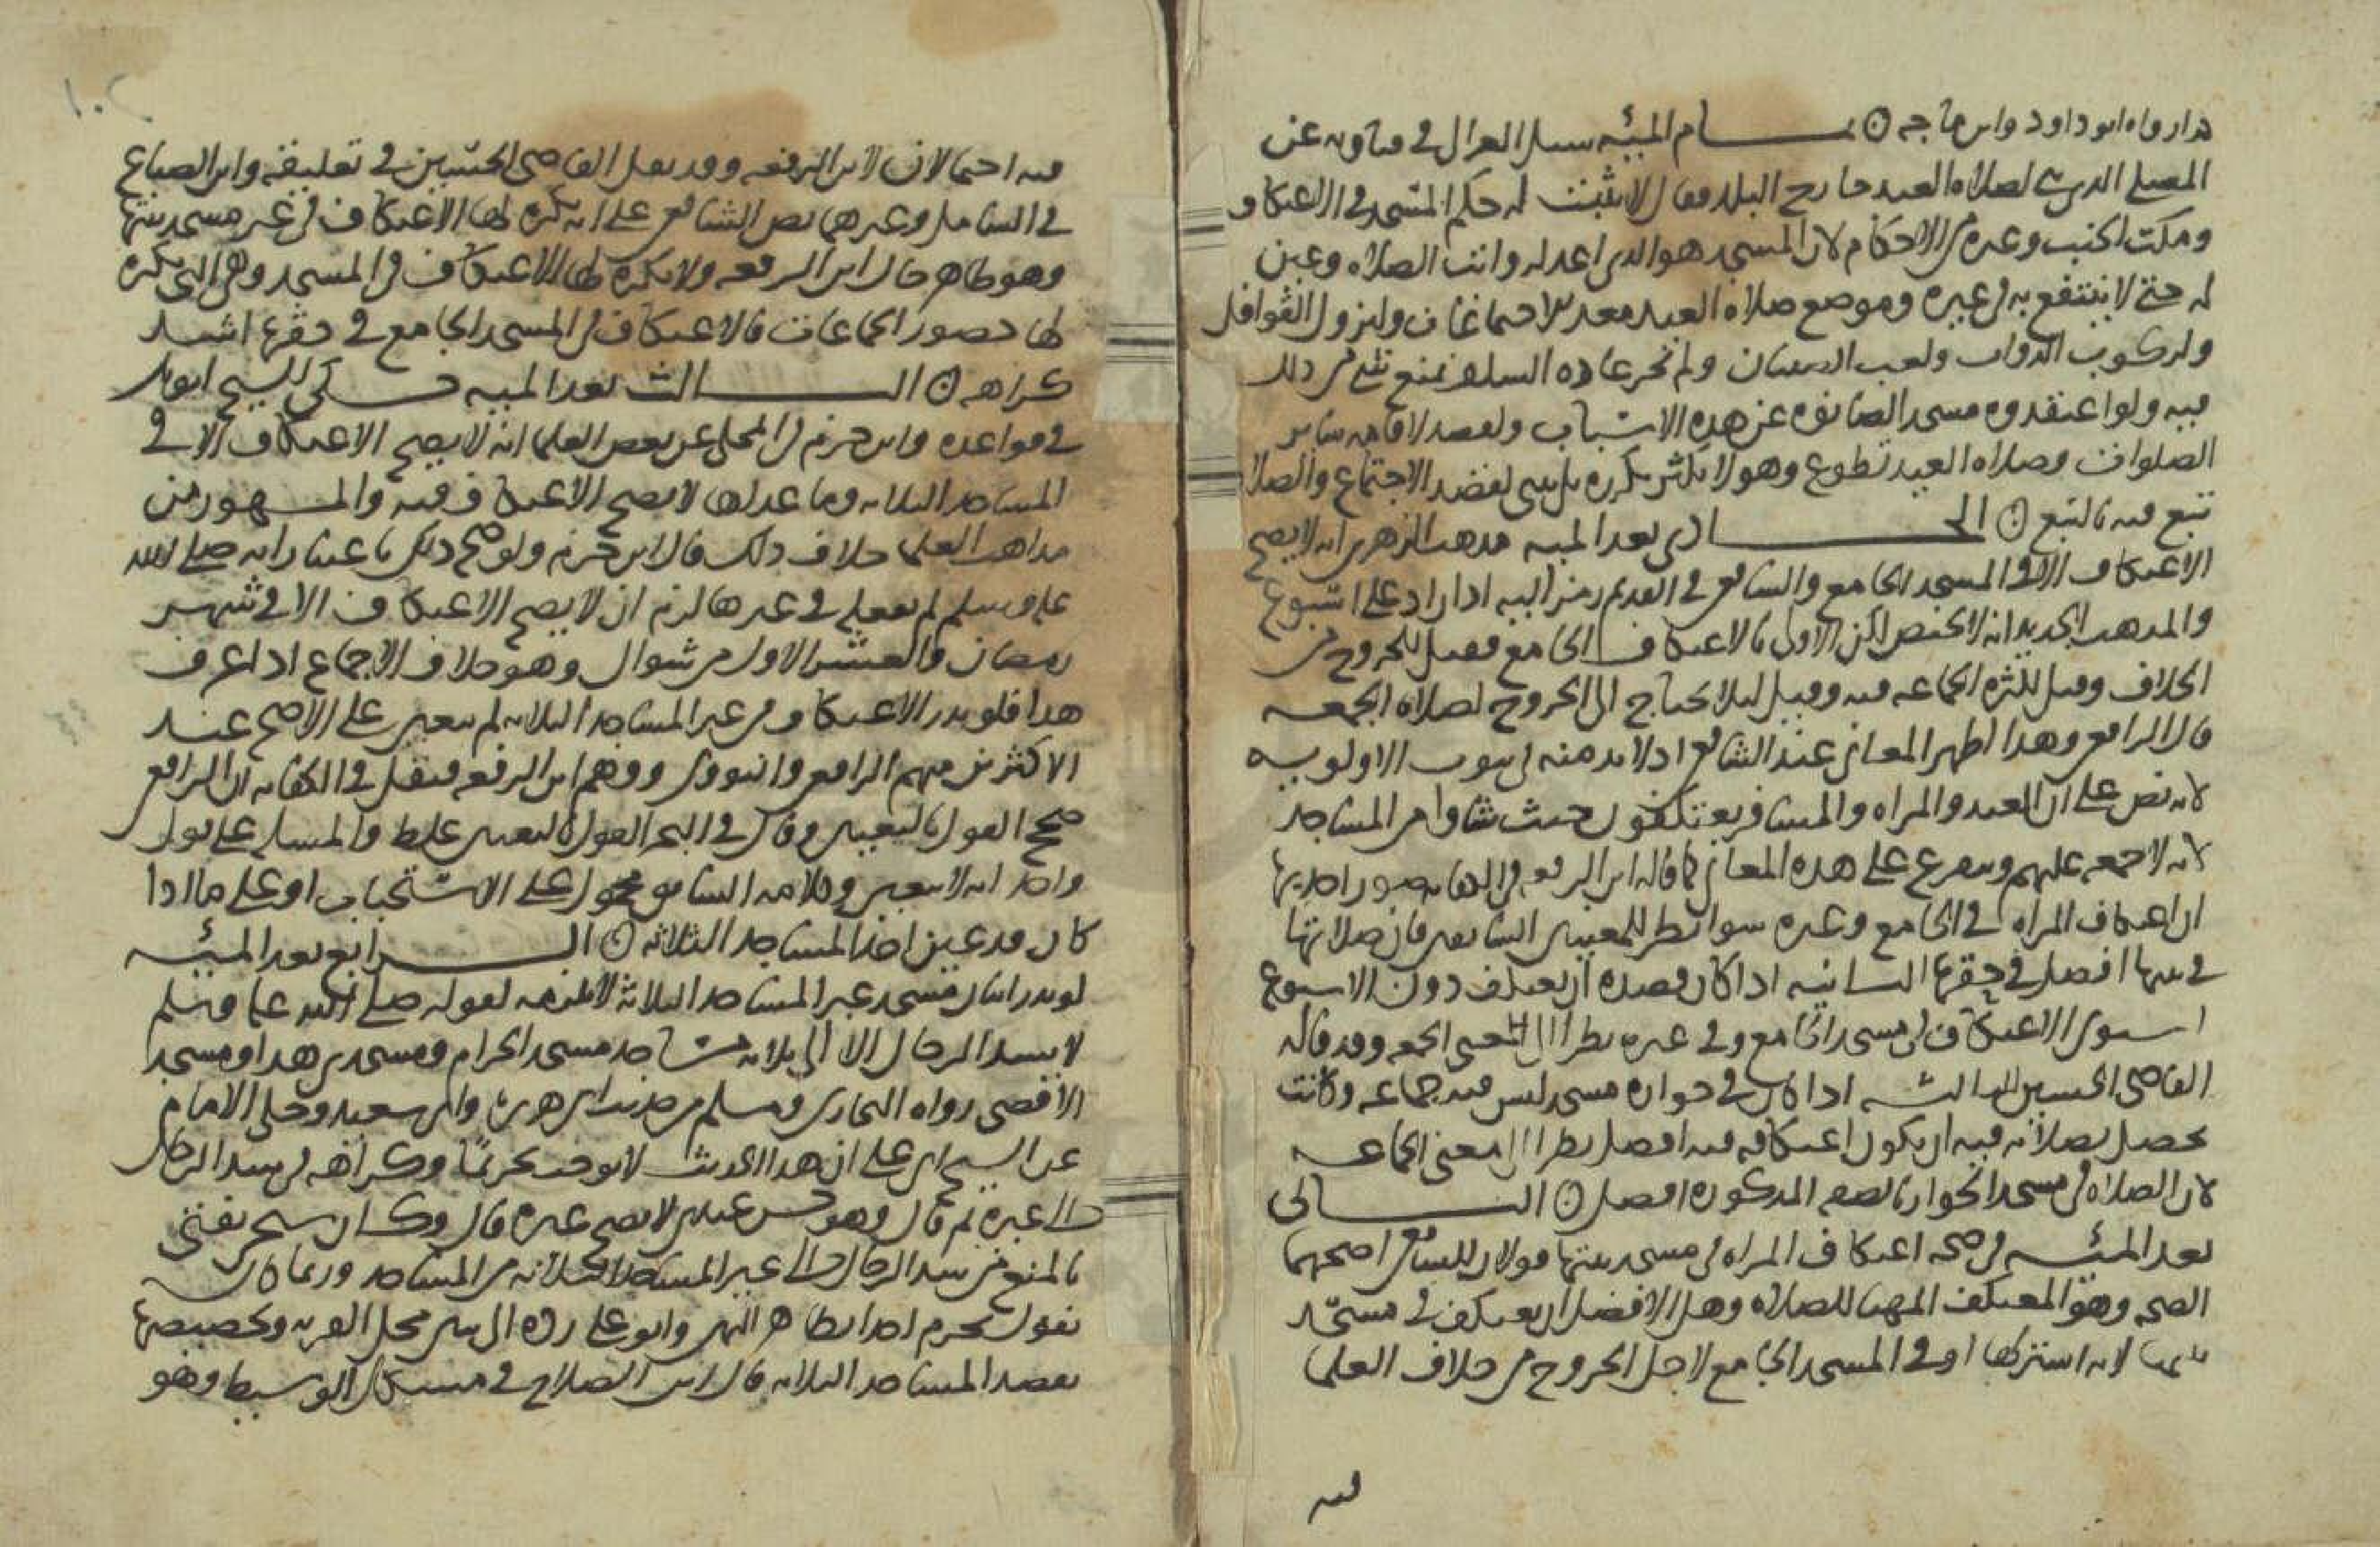 هذا رواه ابو داود وابن ماجه ۞ تمام المئه سئل الغزالي في فتاويه عن
المصلى الذي بني لصلاه العيد خارج البلد فقال لا يثبت له حكم المسجد في الاعتكاف
ومكث الجنب وغيره من الاحكام لان المسجد هو الذي اعد لرواتب الصلاه وعين
له حتى لا ينتفع به في غيره وموضع صلاه العيد معد للاجتماعات ولنزول القوافل
ولركوب الدواب ولعب الصبيان ولم تجر عاده السلف بمنع شي من ذلك
فيه ولو اعتقدوه مسجدا لصانوه عن هذه الاسباب ولقصد لاقامه سائر
الصلوات وصلاه العيد تطوع وهو لا يكثر تكرره بل يبنى لقصد الاجتماع والصلاه
تقع فيه بالتبع ۞ الحادي بعد المئه مذهب الزهري انه لا يصح
الاعتكاف الا في المسجد الجامع والشافعي في القديم رمز اليه اذا زاد على اسبوع
والمذهب الجديد انه لا يختص لكن الاولى بالاعتكاف الجامع فقيل للخروج من
الخلاف وقيل لكثره الجماعه فيه وقيل لئلا يحتاج الى الخروج لصلاه الجمعه
قال الرافعي وهذا اظهر المعاني عند الشافعي اذ لا بد منه في ثبوت الاولويه
لانه نص على ان العبد والمراه والمسافر يعتكفون حيث شاوا من المساجد
لانه لا جمعه عليهم ويتفرع على هذه المعاني كما قاله ابن الرفعه في الكفايه صور احديها
ان اعتكاف المراه في الجامع وغيره سوا نظرا للمعنيين السابقين فان صلاتها
في بيتها افضل في حقها الثانيه اذا كان قصده ان يعتكف دون الاسبوع
استوى الاعتكاف في مسجد الجامع وفي غيره نظرا الى المعنى الجمعه وقد قاله
القاضي الحسين الثالثه اذا كان في جواره مسجد ليس فيه جماعه وكانت
تحصل بصلاته فيه ان يكون اعتكافه فيه افضل نظرا الى معنى الجماعه
لان الصلاه في مسجد الجوار بالصفه المذكوره افضل ۞ الثاني
بعد المئه في صحه اعتكاف المراه في مسجد بيتها قولان للشافعي اصحهما
الصحه وهو المعتكف المهيا للصلاه وهل الافضل ان يعتكف في مسجد
بيتها لانه استر لها او في المسجد الجامع لاجل الخروج من خلاف العلما
فيه
١٠٢
فيه احتمالان لابن الرفعه وقد نقل القاضي الحسين في تعليقه وابن الصباغ
في الشامل وغيرهما نص الشافعي على انه يكره لها الاعتكاف في غير مسجد بيتها
وهو ظاهر قال ابن الرفعه ولا يكره لها الاعتكاف في المسجد وهي التي يكره
لها حضور الجماعات فالاعتكاف في المسجد الجامع في حقها اشد
كراهه ۞ الثالث بعد المئه حكى الشيخ ابو بكر
في قواعده وابن حزم في المحلى عن بعض العلما انه لا يصح الاعتكاف الا في
المساجد الثلاثه وما عداها لا يصح الاعتكاف فيه والمشهور من
مذاهب العلما خلاف ذلك قال ابن حزم ولو صح ذلك باعتبار انه صلى الله
عليه وسلم لم يفعله في غيرها لزم ان لا يصح الاعتكاف الا في شهر
رمضان والعشر الاول من شوال وهو خلاف الاجماع اذا عرف
هذا فلو نذر الاعتكاف في غير المساجد الثلاثه لم يتعين على الاصح عند
الاكثرين منهم الرافعي والنووي ووهم ابن الرفعه فنقل في الكفايه ان الرافعي
صحح القول بالتعيين وقال في البحر القول بالتعيين غلط والمسله على قول
واحد انه لا يتعين وكلامه السابق محمول على الاستحباب او على ما اذا
كان قد عين احد المساجد الثلاثه ۞ الرابع بعد المئه
لو نذر اتيان مسجد غير المساجد الثلاثه لا يلزمه لقوله صلى الله عليه وسلم
لا تشد الرحال الا الى ثلاثه مساجد مسجد الحرام ومسجدي هذا ومسجد
الاقصى رواه البخاري ومسلم من حديث ابي هريره وابي سعيد وحكى الامام
عن الشيخ ابي علي ان هذا الحديث لا يوجب تحريما وكراهه في شد الرحال
الى غيره ثم قال وهو حسن عندي لا يصح غيره قال وكان شيخي يفتي
بالمنع من شد الرحال الى غير المساجد الثلاثه من المساجد وربما كان
يقول يحرم اخذا بظاهر النهي وابو علي رده الى تبيين محل القربه وتخصيصها
بقصد المساجد الثلاثه قال ابن الصلاح في مشكل الوسيط وهو